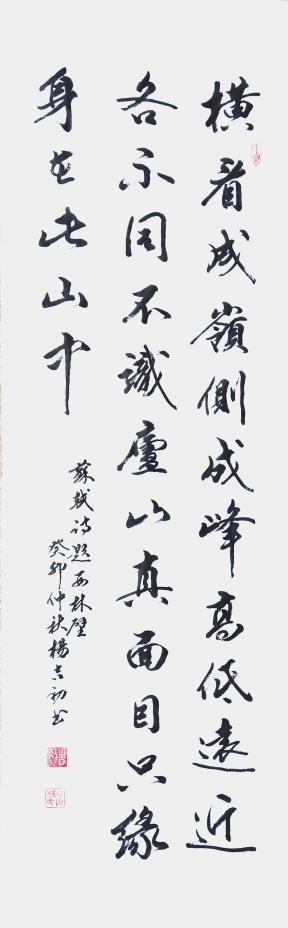 橫看成嶺側成峰高低遠近
各不同不識廬山真面目只緣
身在此山中
蘇軾詩題西林壁
癸卯仲秋楊吉初書